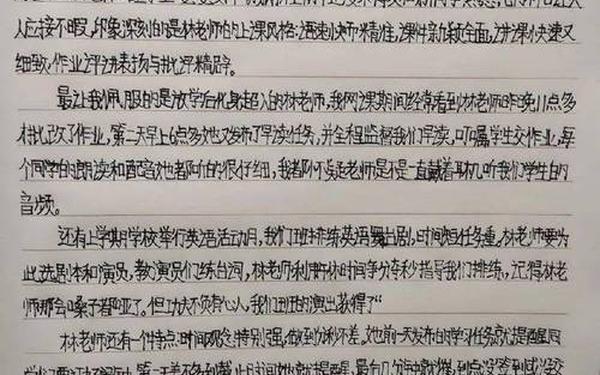 人应接不暇,印象深刻的是林老师的上课风格:语速快而精准,课件新颖全面,讲课快速又
细致,作业评讲表扬与批评精辟。
最让我佩服的是放学后化身超人的林老师,我网课期间经常看到林老师昨晚11点多
才批改了作业,第二天早上6点多她又发布了早读任务,并全程监督我们早读,叮嘱学生交作业,每
个同学的朗读和配音她都听的很仔细,我都怀疑老师是不是一直戴着耳机听我们学生的
音频。
还有上学期学校举行英语活动月,我们班排练英语舞台剧,时间短任务重。林老师要为
此选剧本和演员,教演员们练台词,林老师利用午休时间争分夺秒指导我们排练,记得林老
师那会嗓子都哑了。但功夫不负有心人,我们班的演出获得了“
林老师还有一个特点:时间观念特别强,做到分秒不差。她前一天发布的学习任务就提醒同
第二天差不多到截止时间她就提醒,最后几分钟就催,到点没签到或没交